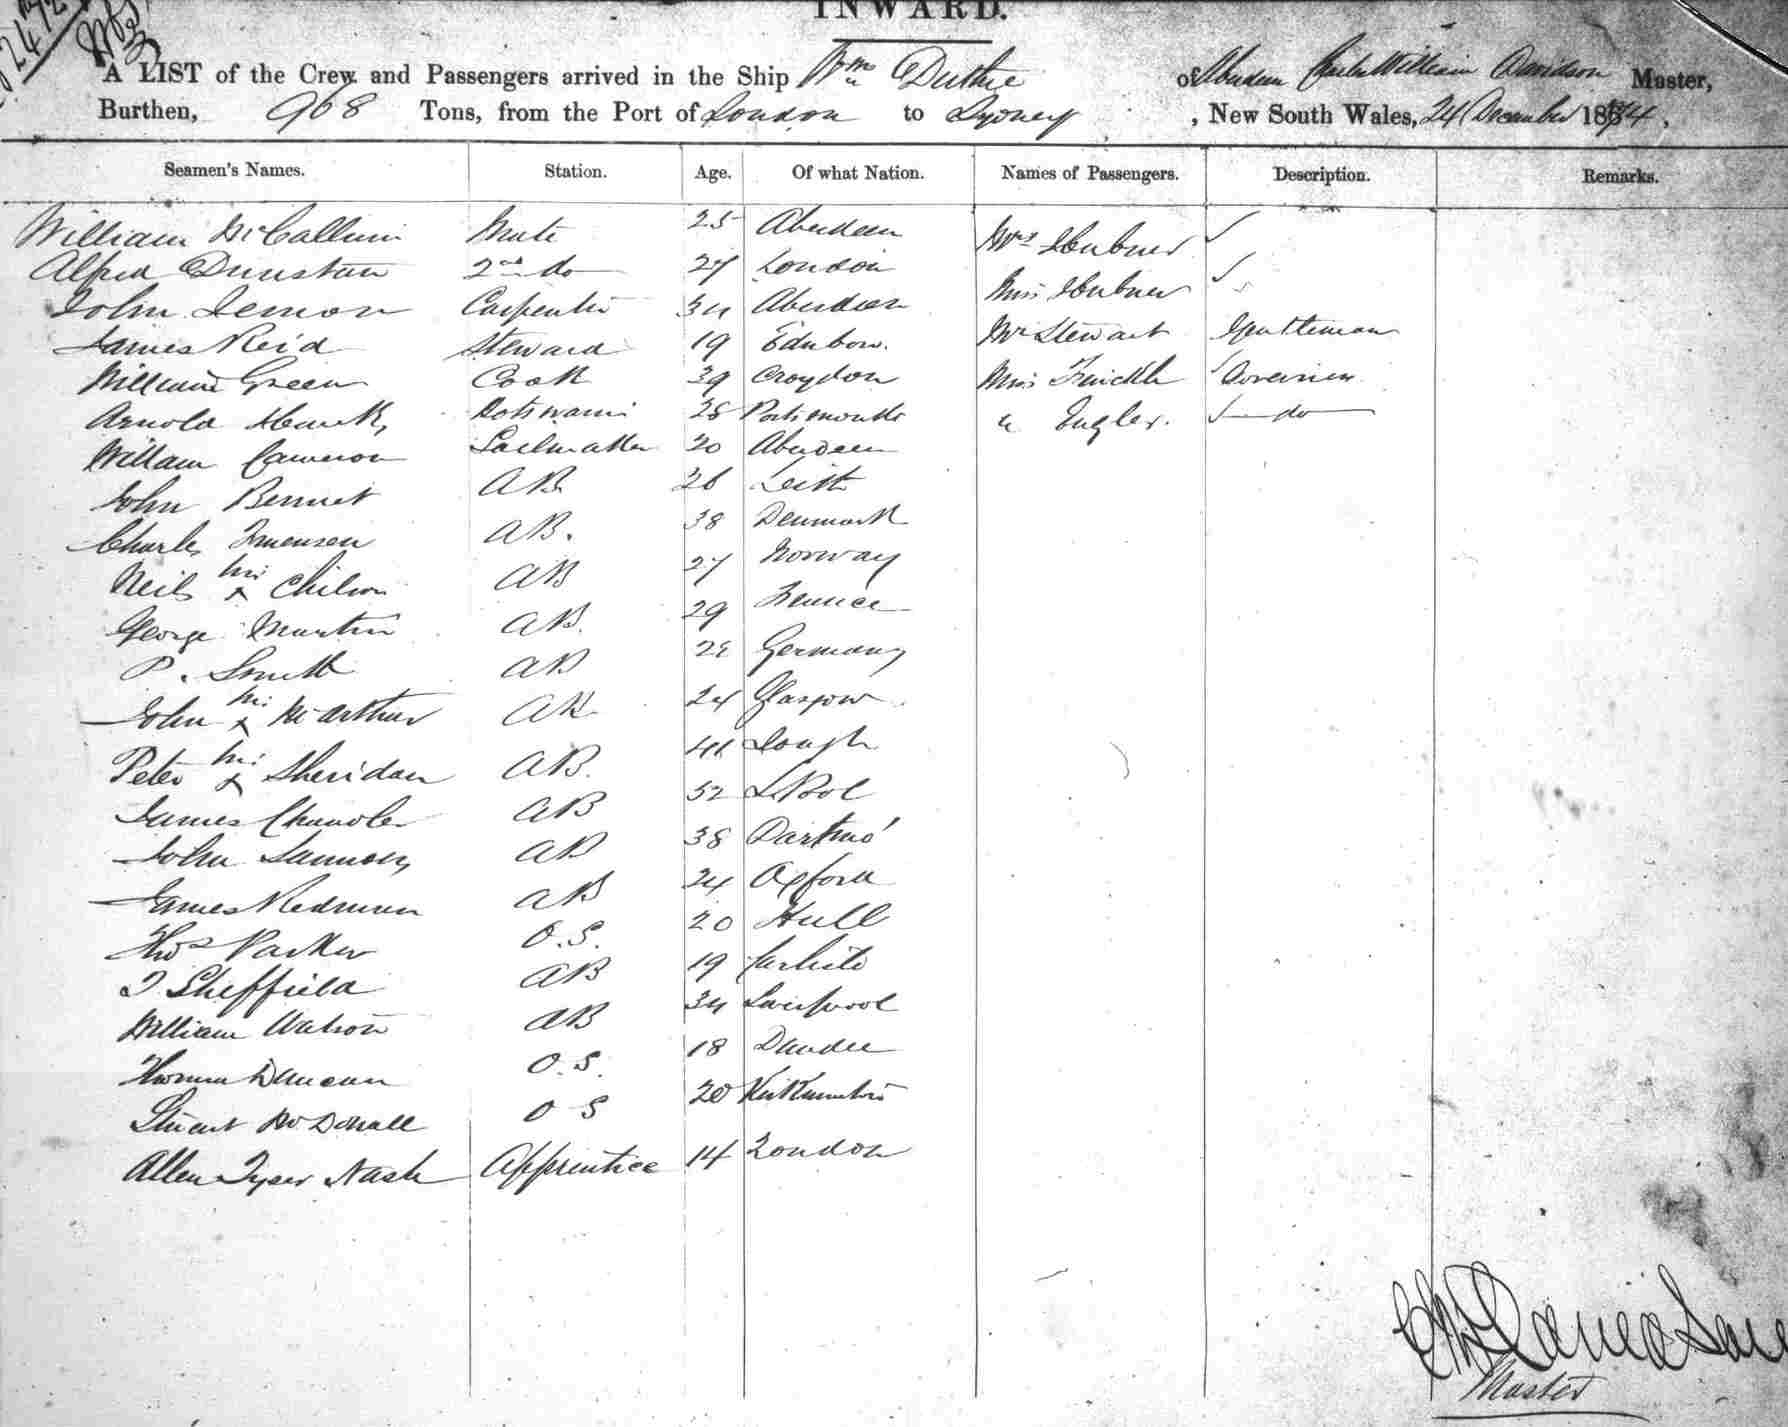 INWARD.
A LIST of the Crew and Passengers arrived in the Ship Wm Duthie of Aberdeen Charles William Davidson Master,
Burthen, 968 Tons, from the Port of London to Sydney, New South Wales, 24 December 1874,
Seamen's Names. Station. Age. Of what Nation. Names of Passengers. Description. Remarks.
William McCallum Mate 25 Aberdeen Mrs Hubner
Alfred Dunstan 2nd do 27 London Miss Hubner
John Lemon Carpenter 34 Aberdeen Mr Stewart Gentleman
James Reid Steward 19 Edinboro. Miss
William Green Cook 39 Croydon " Engler. do
Arnold Botswain 28 Portsmouth
William Cameron Sailmaker 20 Aberdeen
John Bennet AB 26 Leith
Charles AB. 38 Denmark
Neils his x AB 27 Norway
George Martin AB. 29 France
P. Smith AB Germany
John his x McArthur AB 24 Glasgow
Peter his x Sheridan AB. 41
James Chandler AB 52 LPool
John AB 38 Dartmo'
James Redman AB 24 Oxford
Thos Parker O.S. 20 Hull
J Sheffield AB 19 Carlisle
William Watson AB 34 Liverpool
Thomas Duncan O.S. 18 Dundee
Stuart McDouall O S 20
Allen Tyser Nash Apprentice 14 London
CW Davidson
Master